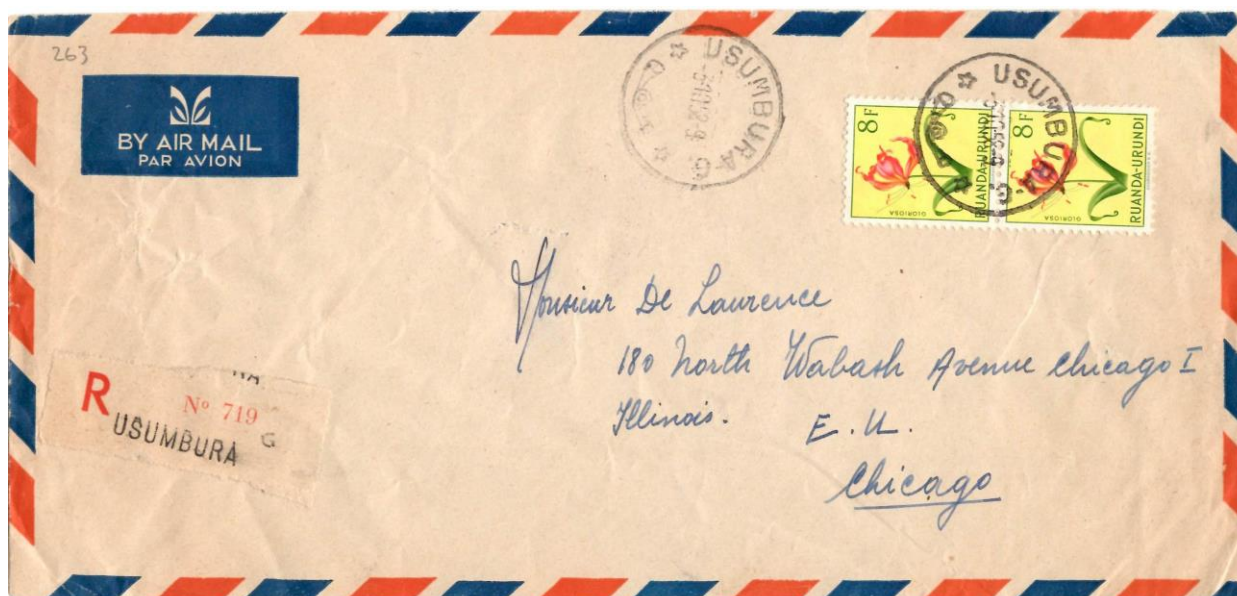 263
BY AIR MAIL
PAR AVION
USUMBURA-G
USUMBURA-G
8F
GLORIOSA
RUANDA-URUNDI
8F
GLORIOSA
RUANDA-URUNDI
Monsieur De Laurence
180 North Wabash Avenue Chicago I
Illinois.
E. U.
Chicago
R
Nº 719
USUMBURA G